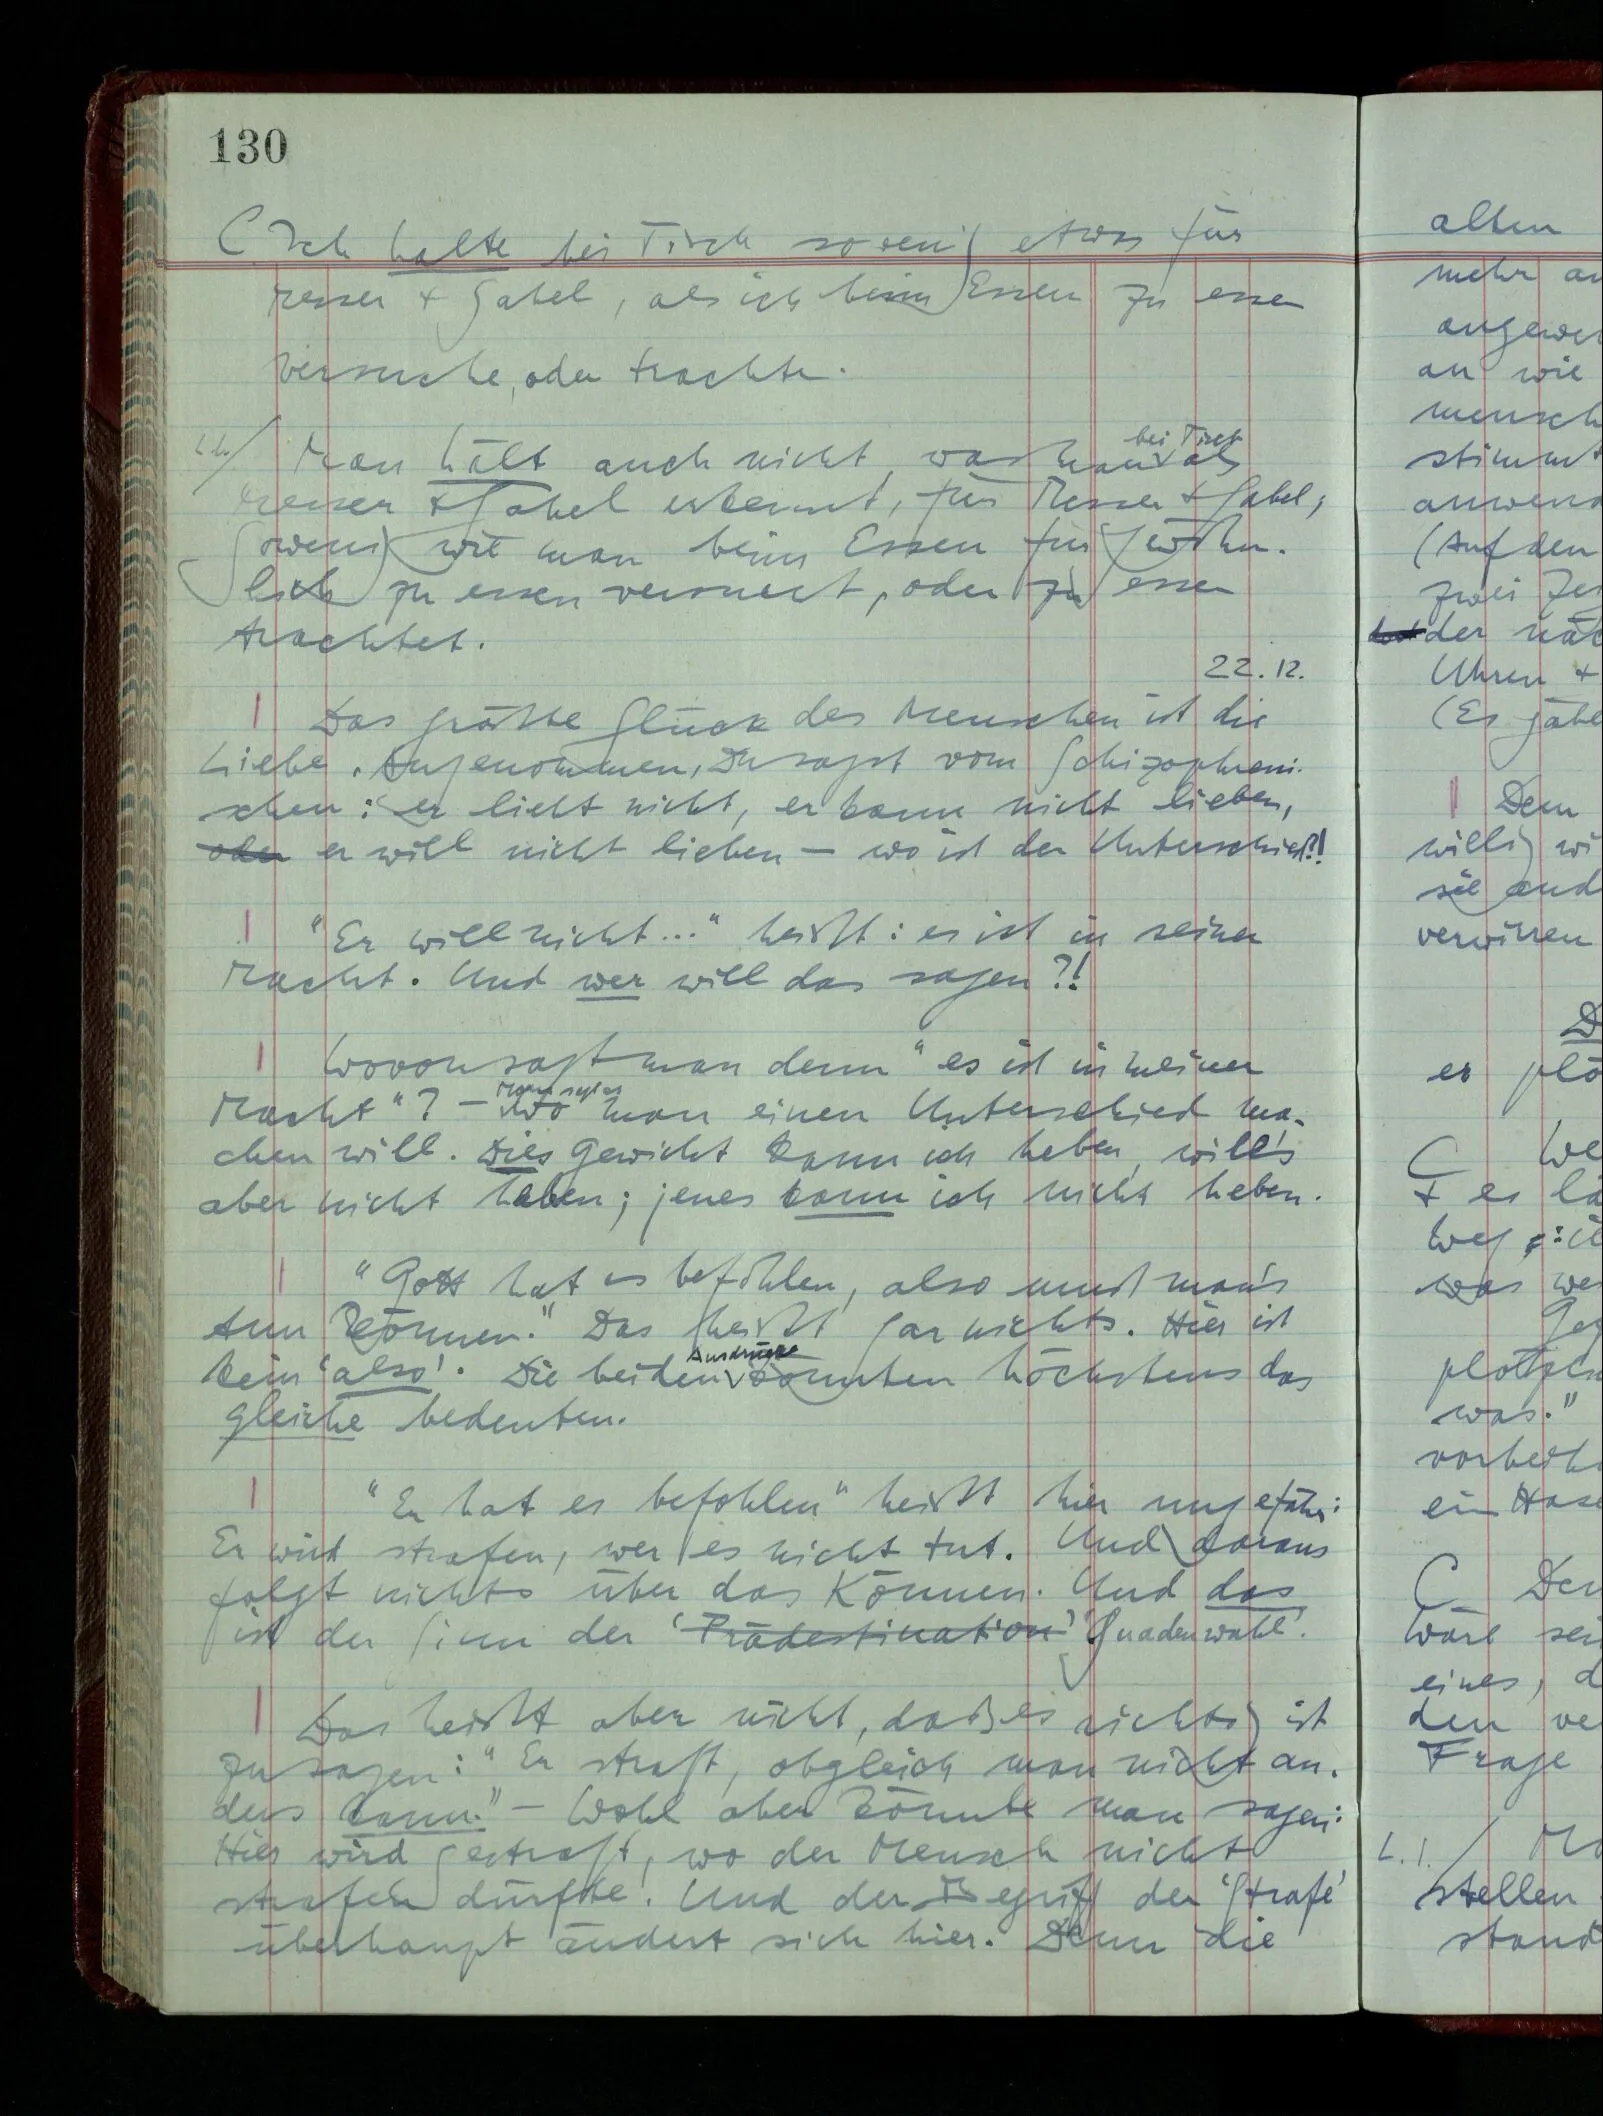 130
C Ich halte bei Tisch sowenig etwas für
Messer + Gabel, als ich beim Essen zu essen
versuche, oder trachte.
bei Tisch
Man hält auch nicht, was man als
Messer + Gabel erkennt, für Messer + Gabel;
sowenig wie man beim Essen für gewöhn-
lich zu essen versucht, oder zu essen
trachtet.
22.12.
| Das größte Glück des Menschen ist die
Liebe. Angenommen, Du sagst vom Schizophreni-
schen: er liebt nicht, er kann nicht lieben,
oder er will nicht lieben – wo ist der Unterschied?!
| "Er will nicht..." heißt: es ist in seiner
Macht. Und wer will das sagen?!
| Wovon sagt man denn "es ist in meiner
Man sagt es
Macht"? – Wo man einen Unterschied ma-
chen will. Dies Gewicht kann ich heben, will's
aber nicht heben; jenes kann ich nicht heben.
| "Gott hat es befohlen, also muß man's
tun können." Das heißt gar nichts. Hier ist
kein 'also'. Die beiden Ausdrücke könnten höchstens das
gleiche bedeuten.
| "Er hat es befohlen" heißt hier ungefähr:
Er wird strafen, wer es nicht tut. Und daraus
folgt nichts über das Können. Und das
ist der Sinn der 'Prädestination' 'Gnadenwahl'.
| Das heißt aber nicht, daß es richtig ist
zu sagen: "Er straft, obgleich man nicht an-
ders kann." – Wohl aber könnte man sagen:
Hier wird gestraft, wo der Mensch nicht
strafen dürfte. Und der Begriff der 'Strafe'
überhaupt ändert sich hier. Denn die
alten
mehr
an wie
mensch
stimmt
(Auf den
zwei
der
Uhren +
| Dem
willig
verwirren
er
C
+ es
Weg
was
was."
ein Hase
C
wäre
eines,
den
Frage
stellen